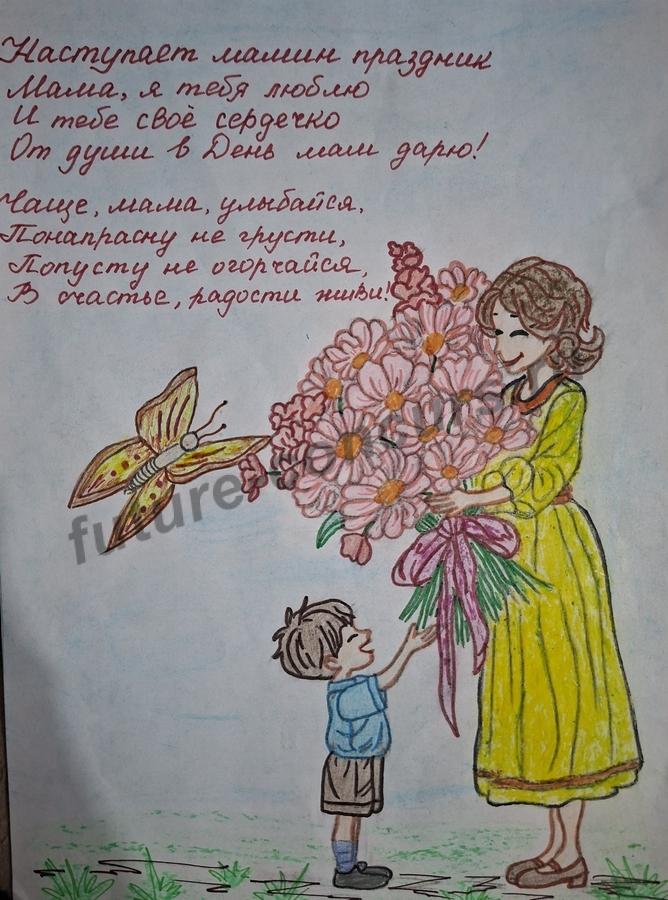 Наступает мамин праздник
Мама, я тебя люблю
И тебе своё сердечко
От души в День мам дарю!
Чаще, мама, улыбайся,
Понапрасну не грусти,
Попусту не огорчайся,
В счастье, радости живи!